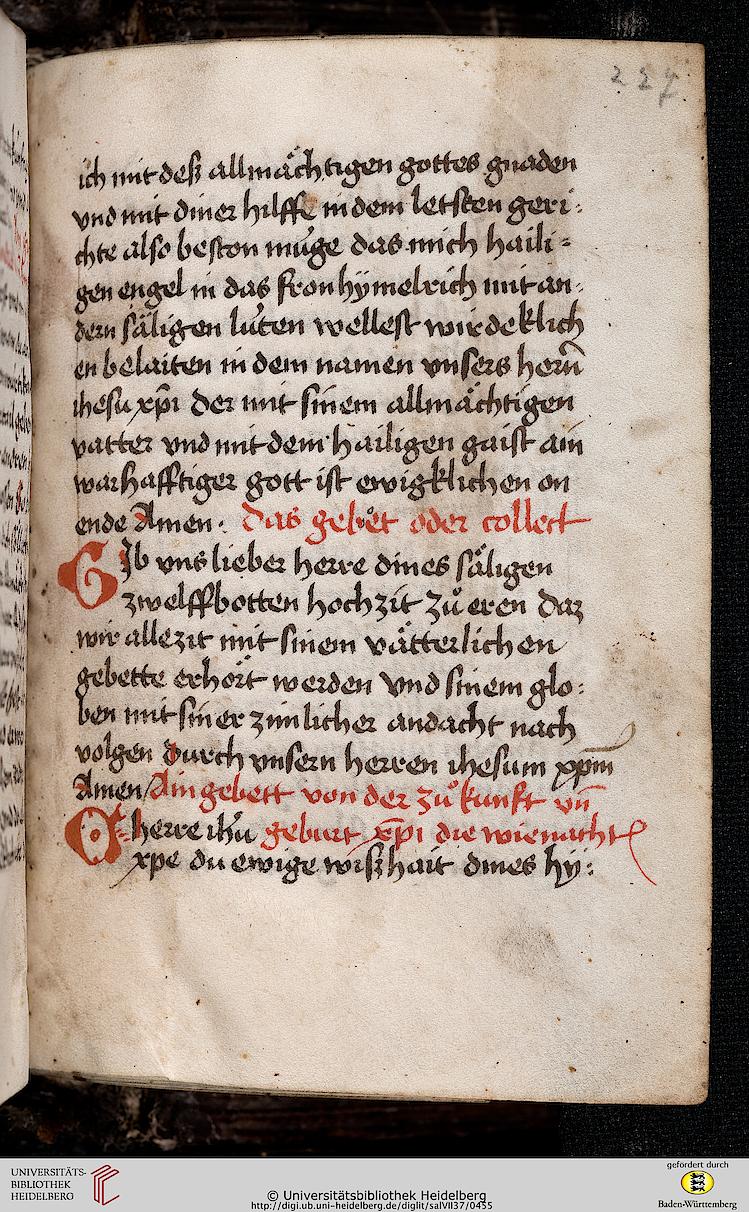 227
ich mit deß allmächtigen gottes gnaden
vnd mit diner hilffe in dem letsten geri:
chte also beston müge das mich haili:
gen engel in das fron hymelrich mit an:
dern säligen lüten wellest wirdeklich
en belaiten in dem namen vnsers herñ
ihesu xp̄i der mit sinem allmächtigen
vatter vnd mit dem hailigen gaist ain
warhafftiger gott ist ewigklichen on
ende Amen. das gebet oder collect
GIb vns lieber herre dines säligen
zwelffbotten hochzit zů eren daz
wir allezit mit sinem vätterlichen
gebette erhört werden vnd sinem glo:
ben mit siner zimlicher andacht nach
volgen durch vnsern herren ihesum xp̄m
Amen / Ain gebett von der zůkunft vn̄
O herre ih̄u geburt xp̄i die wienacht
xpe du ewige wißhait dines hy:
UNIVERSITÄTS-
BIBLIOTHEK
HEIDELBERG
© Universitätsbibliothek Heidelberg
http://digi.ub.uni-heidelberg.de/diglit/salVII37/0455
gefördert durch
Baden-Württemberg